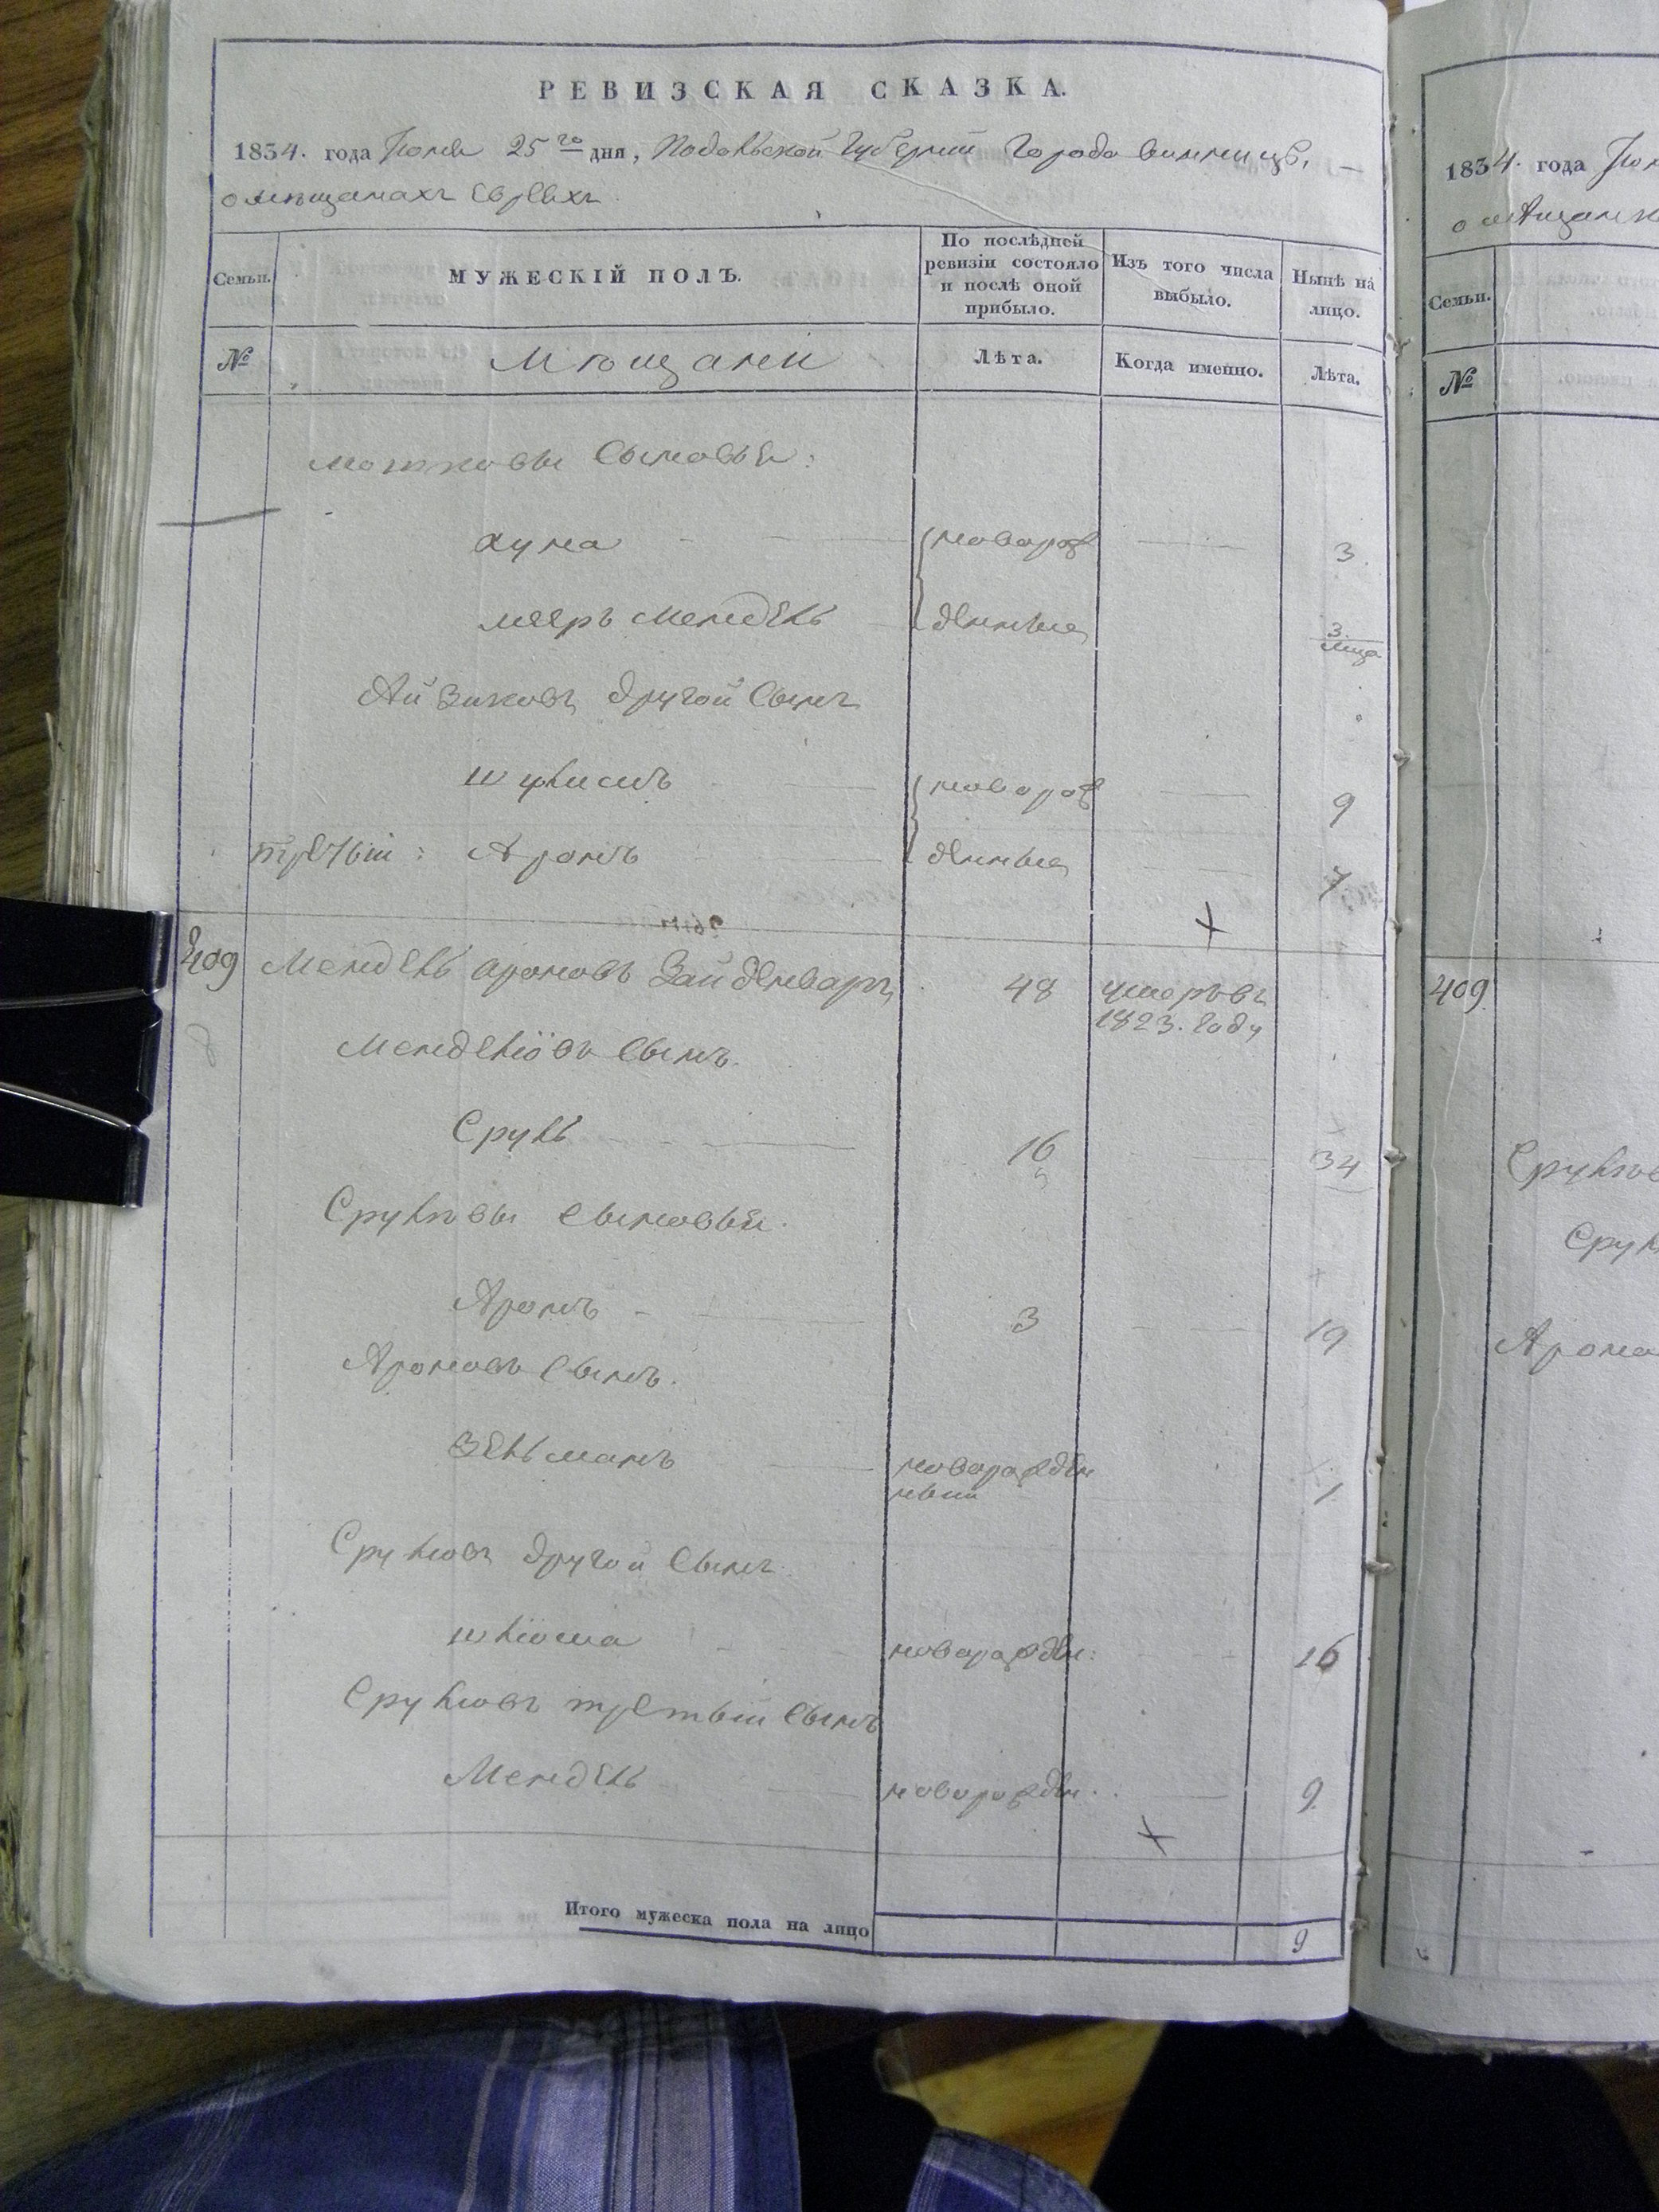 РЕВИЗСКАЯ СКАЗКА.
1834. года 25го дня, Подольской Губернии Города Винницы,
о мѣщанахъ Евреяхъ
Семьи. МУЖЕСКІЙ ПОЛЪ. По послѣдней ревизіи состояло и послѣ оной прибыло. Изъ того числа выбыло. Нынѣ на лицо.
№ Мѣщани Лѣта. Когда именно. Лѣта.
Мошковы Сыновья:
Хуна новорож 3.
Мееръ Мендель денные 3. мца
Айзиковъ другой Сынъ
новорож 9
третьій: Аронъ денные 7
409 Мендель Ароновъ 48 умеръ въ
1823. Году
Менделіовъ Сынъ.
Сруль 16 34
Срулювы Сыновья.
Аронъ 3 19
Ароновъ Сынъ.
Зельманъ новорожден
ный 1
Срулювъ другой Сынъ.
Шліома новорожден: 16
Срулювъ третьій Сынъ
Мендель новорожден. 9.
Итого мужеска пола на лицо 9
1834. года
Семьи.
№
409